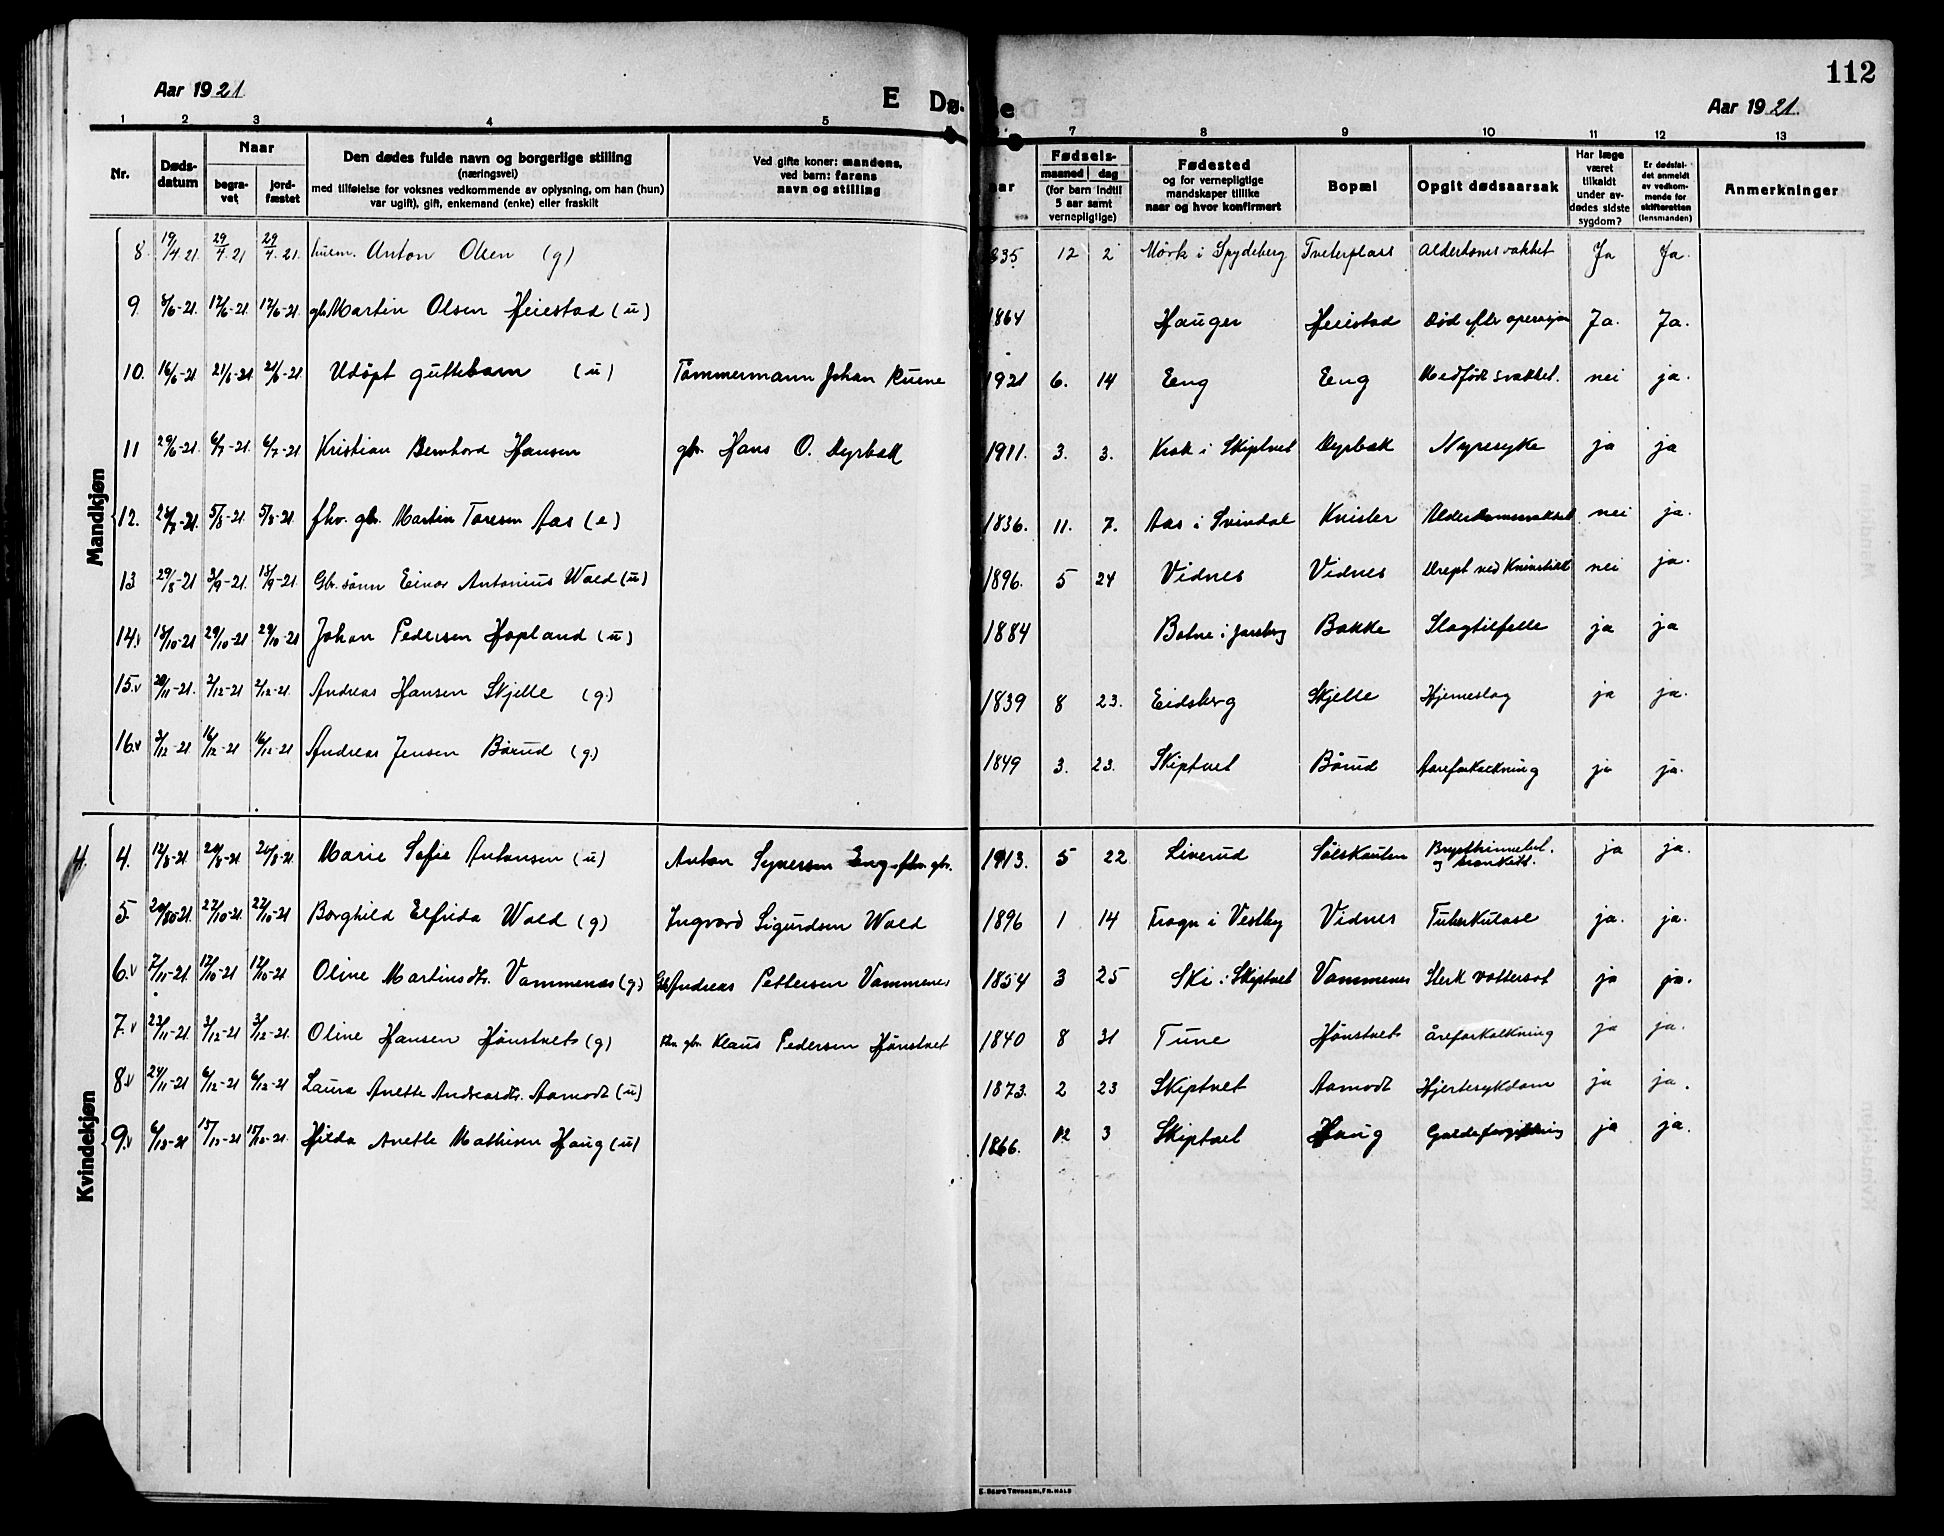 Aar 1921 E Dø
112
Aar 1921.
1 2 3 4 5 7 8 9 10 11 12 13
Nr. Døds-datum Naar begra-vet jord-fæstet
Den dødes fulde navn og borgerlige stilling
(næringsvei)
med tilføielse for voksnes vedkommende av oplysning, om han (hun)
var ugift), gift, enkemand (enke) eller fraskilt
Ved gifte koner: mandens,
ved barn: farens
navn og stilling
Fødsels-
maaned dag
(for barn indtil
5 aar samt
vernepligtige)
Fødested
og for vernepligtige
mandskaper tillike
naar og hvor konfirmert
Bopæl
Opgit dødsaarsak
Har læge
været
tilkaldt
under av-
dødes sidste
sygdom?
Er dødsfal-
det anmeldt
av vedkom-
mende for
skifteretten
(lensmanden)
Anmerkninger
Mandkjøn
8. 19/4 21. 29/4 21 29/4 21. Anton Olsen (g) 835 12 2 Mörk i Spydeberg Tveterplass Alderdomssvakhet Ja Ja.
9. 8/6-21. 17/6-21. 17/6-21. gbr Martin Olsen Heiestad (u) 1864 Hauger Heiestad Död efter operasjon Ja. Ja.
10. 16/6-21. 21/6-21. 21/6-21. Udöpt guttebarn (u) Tömmermann Johan Ruene 1921 6. 14 Eng Eng Medfödt svakhet. nei ja.
11 29/6-21. 6/7-21. 6/7-21 Kristian Bernhard Hansen gbr. Hans O. Dyrbak 1911. 3. 3. Krok i Skiptvet Dyrbak Nyresyke ja ja
12. 5/8-21. 5/8-21. fhv. gbr. Martin Toresen Aas (e) 1836. 11. 7. Aas i Svindal Knisler nei ja.
13 29/8-21 3/9-21. 18/9-21. Gbr. sönn Einar Antonius Wold (u) 1896. 5 24 Vidnes Vidnes Drept ved Knivstikk nei ja.
14. v 18/10-21. 29/10-21 29/10-21 Johan Pedersen Hopland (u) 1884 Botne i Jarsberg Bakke Slagtilfelle ja ja
15. v 2/12-21 2/12-21. Andreas Hansen Skjelle (g.) 1839 8 23. Eidsberg Skjelle Hjerneslag ja ja.
16. v 3/12-21. 16/12-21 16/12-21 Andreas Jensen Börud (g.) 1849 3. 23. Skiptvet Börud Aareforkalkning ja ja.
Kvindekjøn
4. 4. Marie Sofie Antonsen (u) Anton Syversen Eng fhv. gbr. 1913. 5 22 Liverud ja ja.
5. 22/10-21. 22/10-21 Borghild Elfrida Wold (g) Ingvard Sigurdsen Wold 1896 1 14 Frogn i Vestby Vidnes Tuberkulose ja. ja.
6. v Oline Martinsdtr. Vammenæs (g) Gbr Andreas Pettersen Vammenes 1854 3 25 Ski i Skiptvet Vammenes Sterk vattersot ja ja.
7. v 23/11-21. 3/12-21. 3/12-21. Oline Hansen Hönstvet (g) Fhv. gbr. Klaus Pedersen Hönstvet 1840 8 31 Tune Hönstvet åreforkalkning ja ja.
8. v 24/11-21 6/12-21 6/12-21 Laura Anette Andreasdtr. Aamodt (u) 1873. 2 23 Skiptvet Aamodt Hjertesykdom ja ja.
9. v Hilda Anette Mathisen Haug (u) 1866. 12 3 Skiptvet Haug Galdeforgiftning ja ja.
E. SEM'S TRYKKERI, FR.HALD